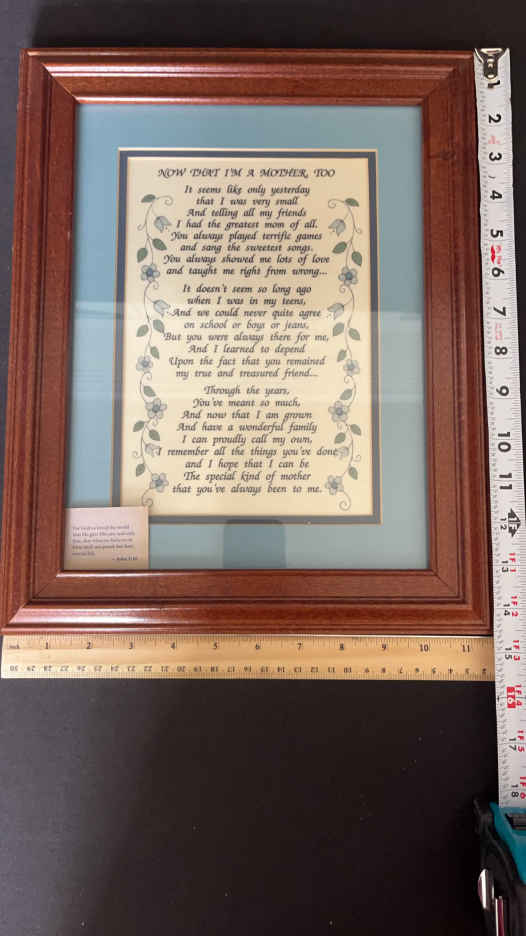 NOW THAT I'M A MOTHER, TOO
It seems like only yesterday
that I was very small
And telling all my friends
I had the greatest mom of all.
You always played terrific games
and sang the sweetest songs.
You always showed me lots of love
and taught me right from wrong...
It doesn't seem so long ago
when I was in my teens,
And we could never quite agree
on school or boys or jeans,
But you were always there for me,
And I learned to depend
Upon the fact that you remained
my true and treasured friend...
Through the years,
You've meant so much,
And now that I am grown
And have a wonderful family
I can proudly call my own,
I remember all the things you've done
and I hope that I can be
The special kind of mother
that you've always been to me.
For God so loved the world
that He gave His one and only
Son, that whoever believes in
Him shall not perish but have
eternal life.
— John 3:16
1 2 3 4 5 6 7 8 9 10 11
30 29 28 27 26 25 24 23 22 21 20 19 18 17 16 15 14 13 12 11 10 9 8 7 6 5 4 3 2
1 2 3 4 5 6 7 8 9 10 11 12 13 14 15 16 17 18
1F 1 1F 2 1F 3 1F 4 1F 5 1F 6